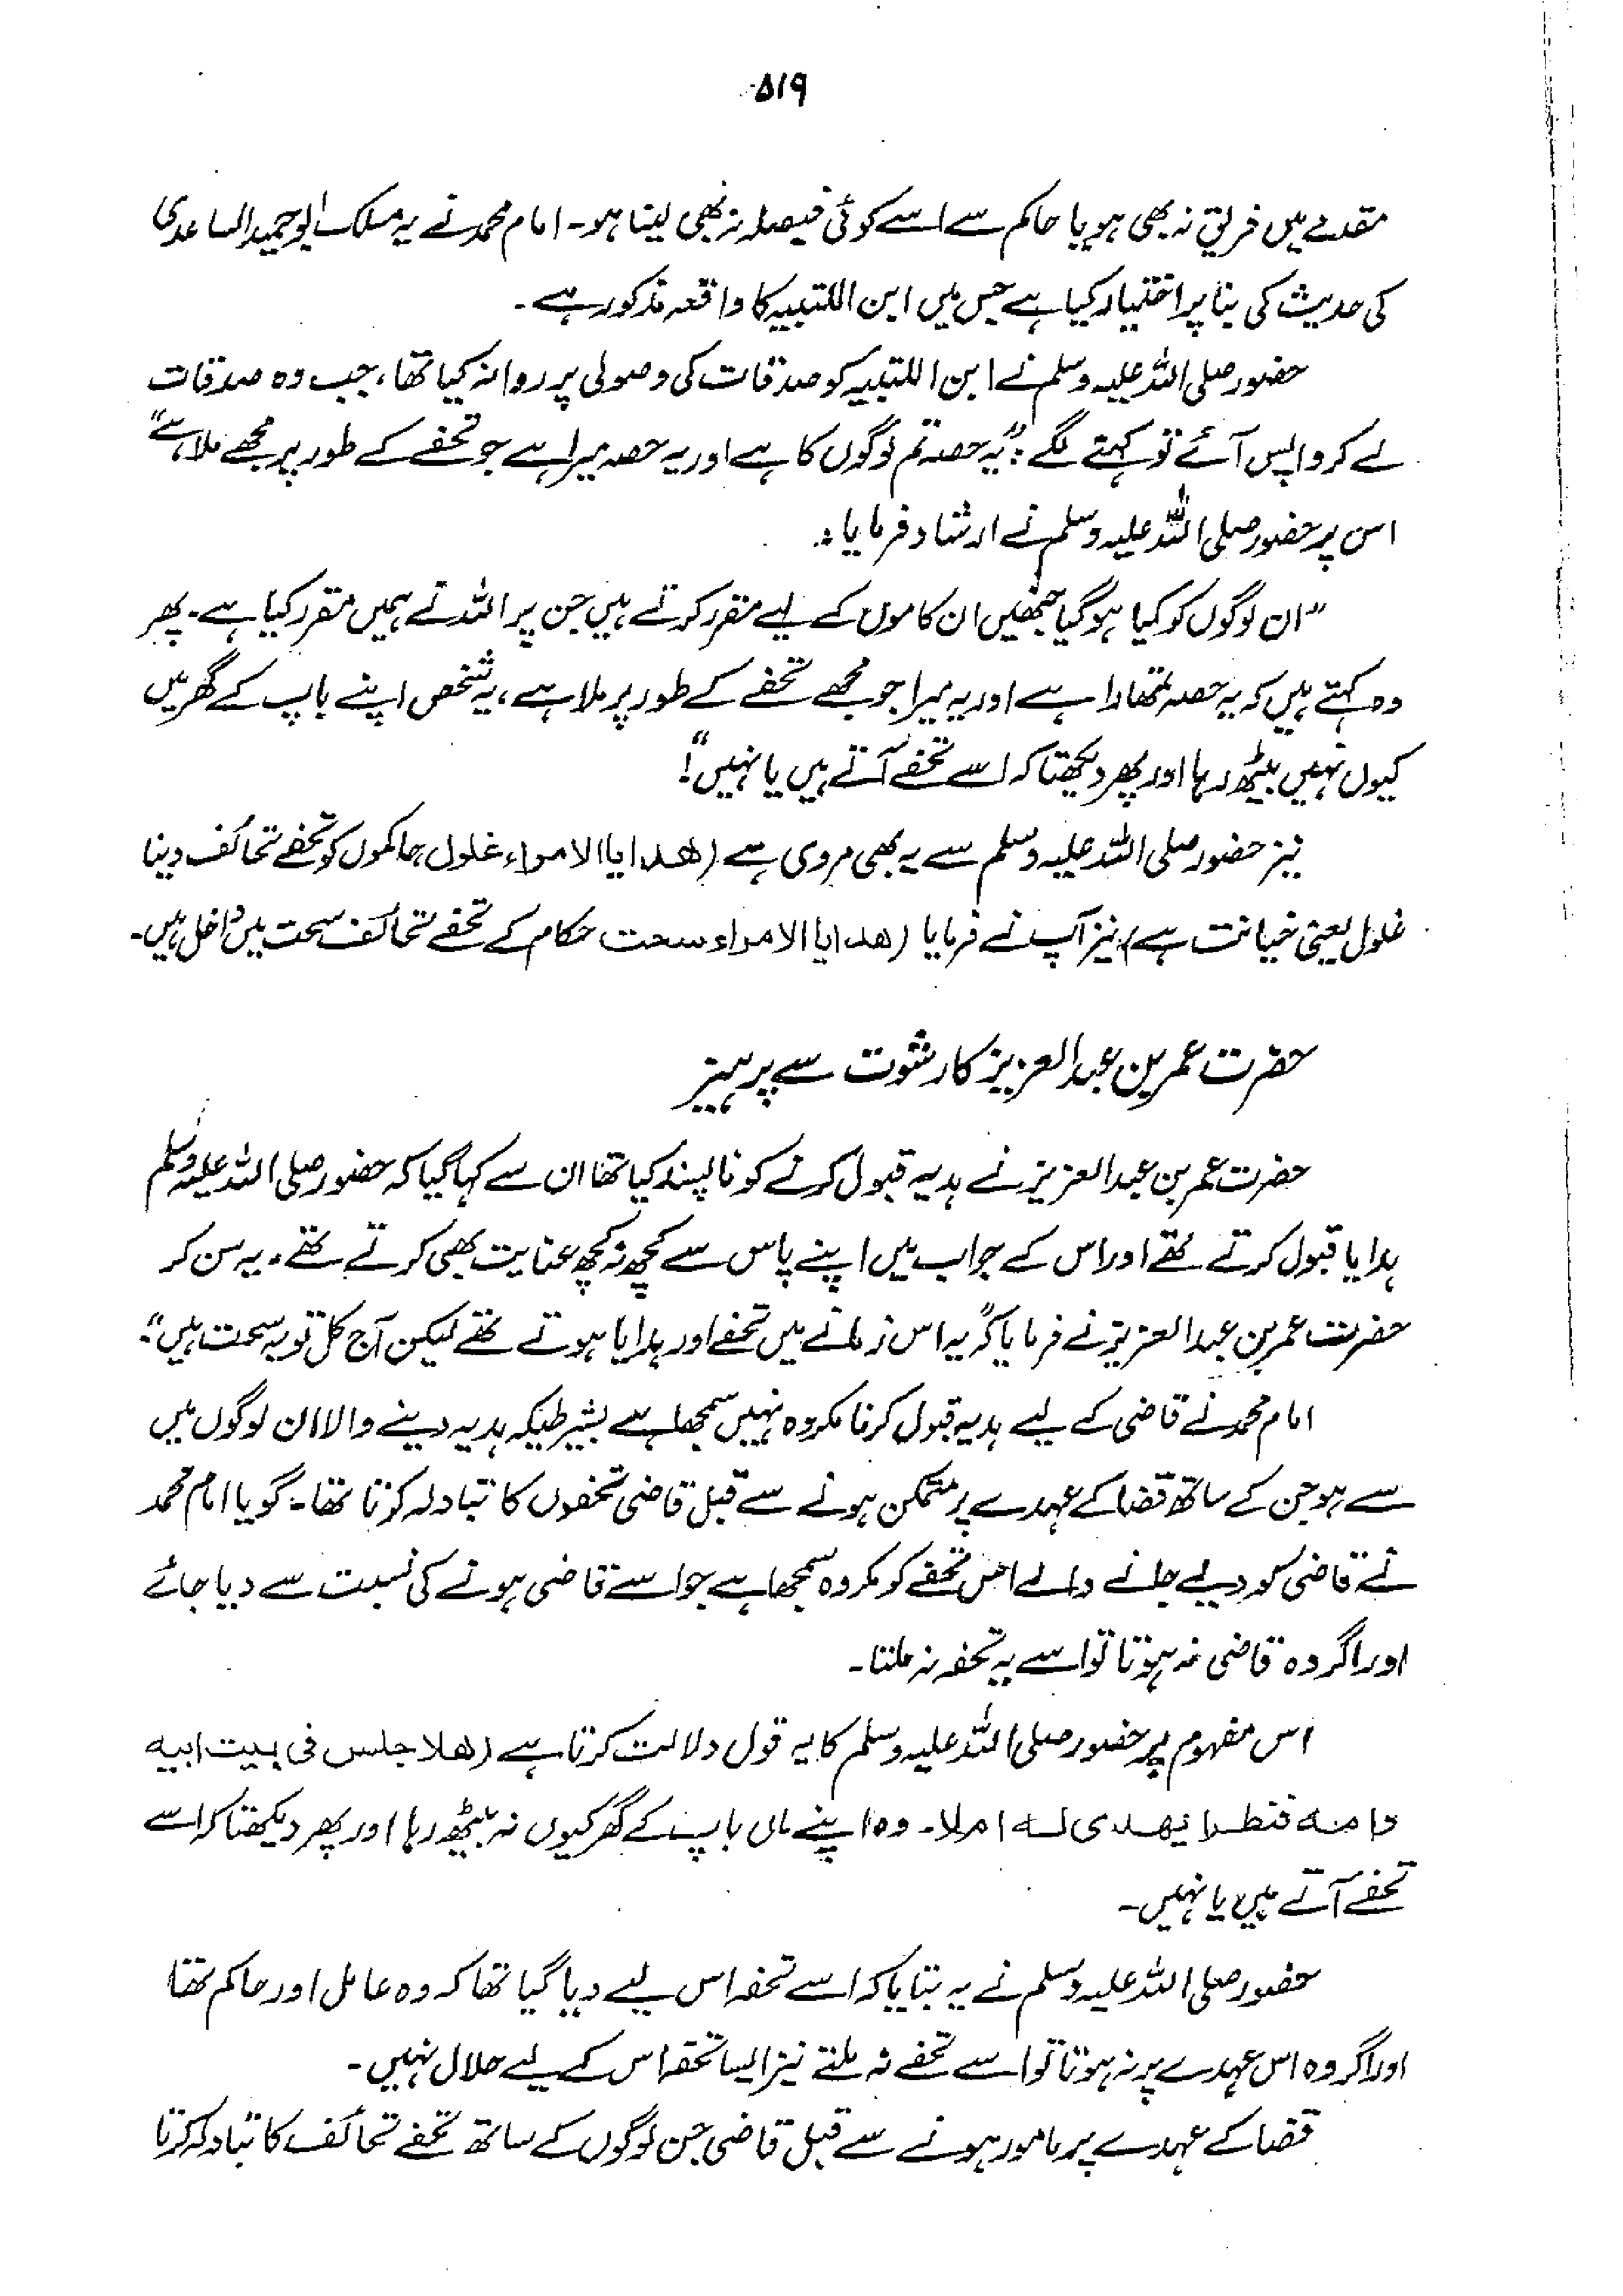 ۵۱۹
مقدمے میں فریق نہ بھی ہو یا حاکم سے اسے کوئی فیصلہ نہ بھی لینا ہو۔ امام محمد نے یہ مسلک ابوحمید الساعدی
کی حدیث کی بنا پر اختیار کیا ہے جس میں ابن اللتبیہ کا واقعہ مذکور ہے۔
حضور صلی اللہ علیہ وسلم نے ابن اللتبیہ کو صدقات کی وصولی پر روانہ کیا تھا، جب وہ صدقات
لے کر واپس آئے تو کہنے لگے: "یہ حصہ تم لوگوں کا ہے اور یہ حصہ میرا ہے جو تحفے کے طور پر مجھے ملا ہے"
اس پر حضور صلی اللہ علیہ وسلم نے ارشاد فرمایا:
"ان لوگوں کو کیا ہو گیا جنھیں ان کاموں کے لیے مقرر کرتے ہیں جن پر اللہ نے ہمیں مقرر کیا ہے۔ پھر
وہ کہتے ہیں کہ یہ حصہ تمھارا ہے اور یہ میرا جو مجھے تحفے کے طور پر ملا ہے، یہ شخص اپنے باپ کے گھر میں
کیوں نہیں بیٹھ رہا اور پھر دیکھتا کہ اسے تحفے آتے ہیں یا نہیں"!
نیز حضور صلی اللہ علیہ وسلم سے یہ بھی مروی ہے (هدايا الامراء غلول حاکموں کو تحفے تحائف دینا
غلول یعنی خیانت ہے) نیز آپ نے فرمایا (هدايا الامراء سحت حکام کے تحفے تحائف سحت میں داخل ہیں۔
حضرت عمر بن عبدالعزیز کا رشوت سے پرہیز
حضرت عمر بن عبدالعزیز نے ہدیہ قبول کرنے کو ناپسند کیا تھا ان سے کہا گیا کہ حضور صلی اللہ علیہ وسلم
ہدایا قبول کرتے تھے اور اس کے جواب میں اپنے پاس سے کچھ نہ کچھ عنایت بھی کرتے تھے۔ یہ سن کر
حضرت عمر بن عبدالعزیز نے فرمایا کہ "یہ اس زمانے میں تحفے اور ہدایا ہوتے تھے لیکن آج کل تو یہ سحت ہیں"۔
امام محمد نے قاضی کے لیے ہدیہ قبول کرنا مکروہ نہیں سمجھا ہے بشرطیکہ ہدیہ دینے والا ان لوگوں میں
سے ہو جن کے ساتھ قضا کے عہدے پر متمکن ہونے سے قبل قاضی تحفوں کا تبادلہ کرتا تھا۔ گویا امام محمد
نے قاضی کو دیے جانے والے اس تحفے کو مکروہ سمجھا ہے جو اسے قاضی ہونے کی نسبت سے دیا جائے
اور اگر وہ قاضی نہ ہوتا تو اسے یہ تحفہ نہ ملتا۔
اس مفہوم پر حضور صلی اللہ علیہ وسلم کا یہ قول دلالت کرتا ہے (هلا جلس فی بیت ابیه
وامه فنظر ایهدی له ام لا۔ وہ اپنے ماں باپ کے گھر کیوں نہ بیٹھ رہا اور پھر دیکھتا کہ اسے
تحفے آتے ہیں یا نہیں۔
حضور صلی اللہ علیہ وسلم نے یہ بتایا کہ اسے تحفہ اس لیے دیا گیا تھا کہ وہ عامل اور حاکم تھا
اور اگر وہ اس عہدے پر نہ ہوتا تو اسے تحفے نہ ملتے نیز ایسا تحفہ اس کے لیے حلال نہیں۔
قضا کے عہدے پر مامور ہونے سے قبل قاضی جن لوگوں کے ساتھ تحفے تحائف کا تبادلہ کرتا